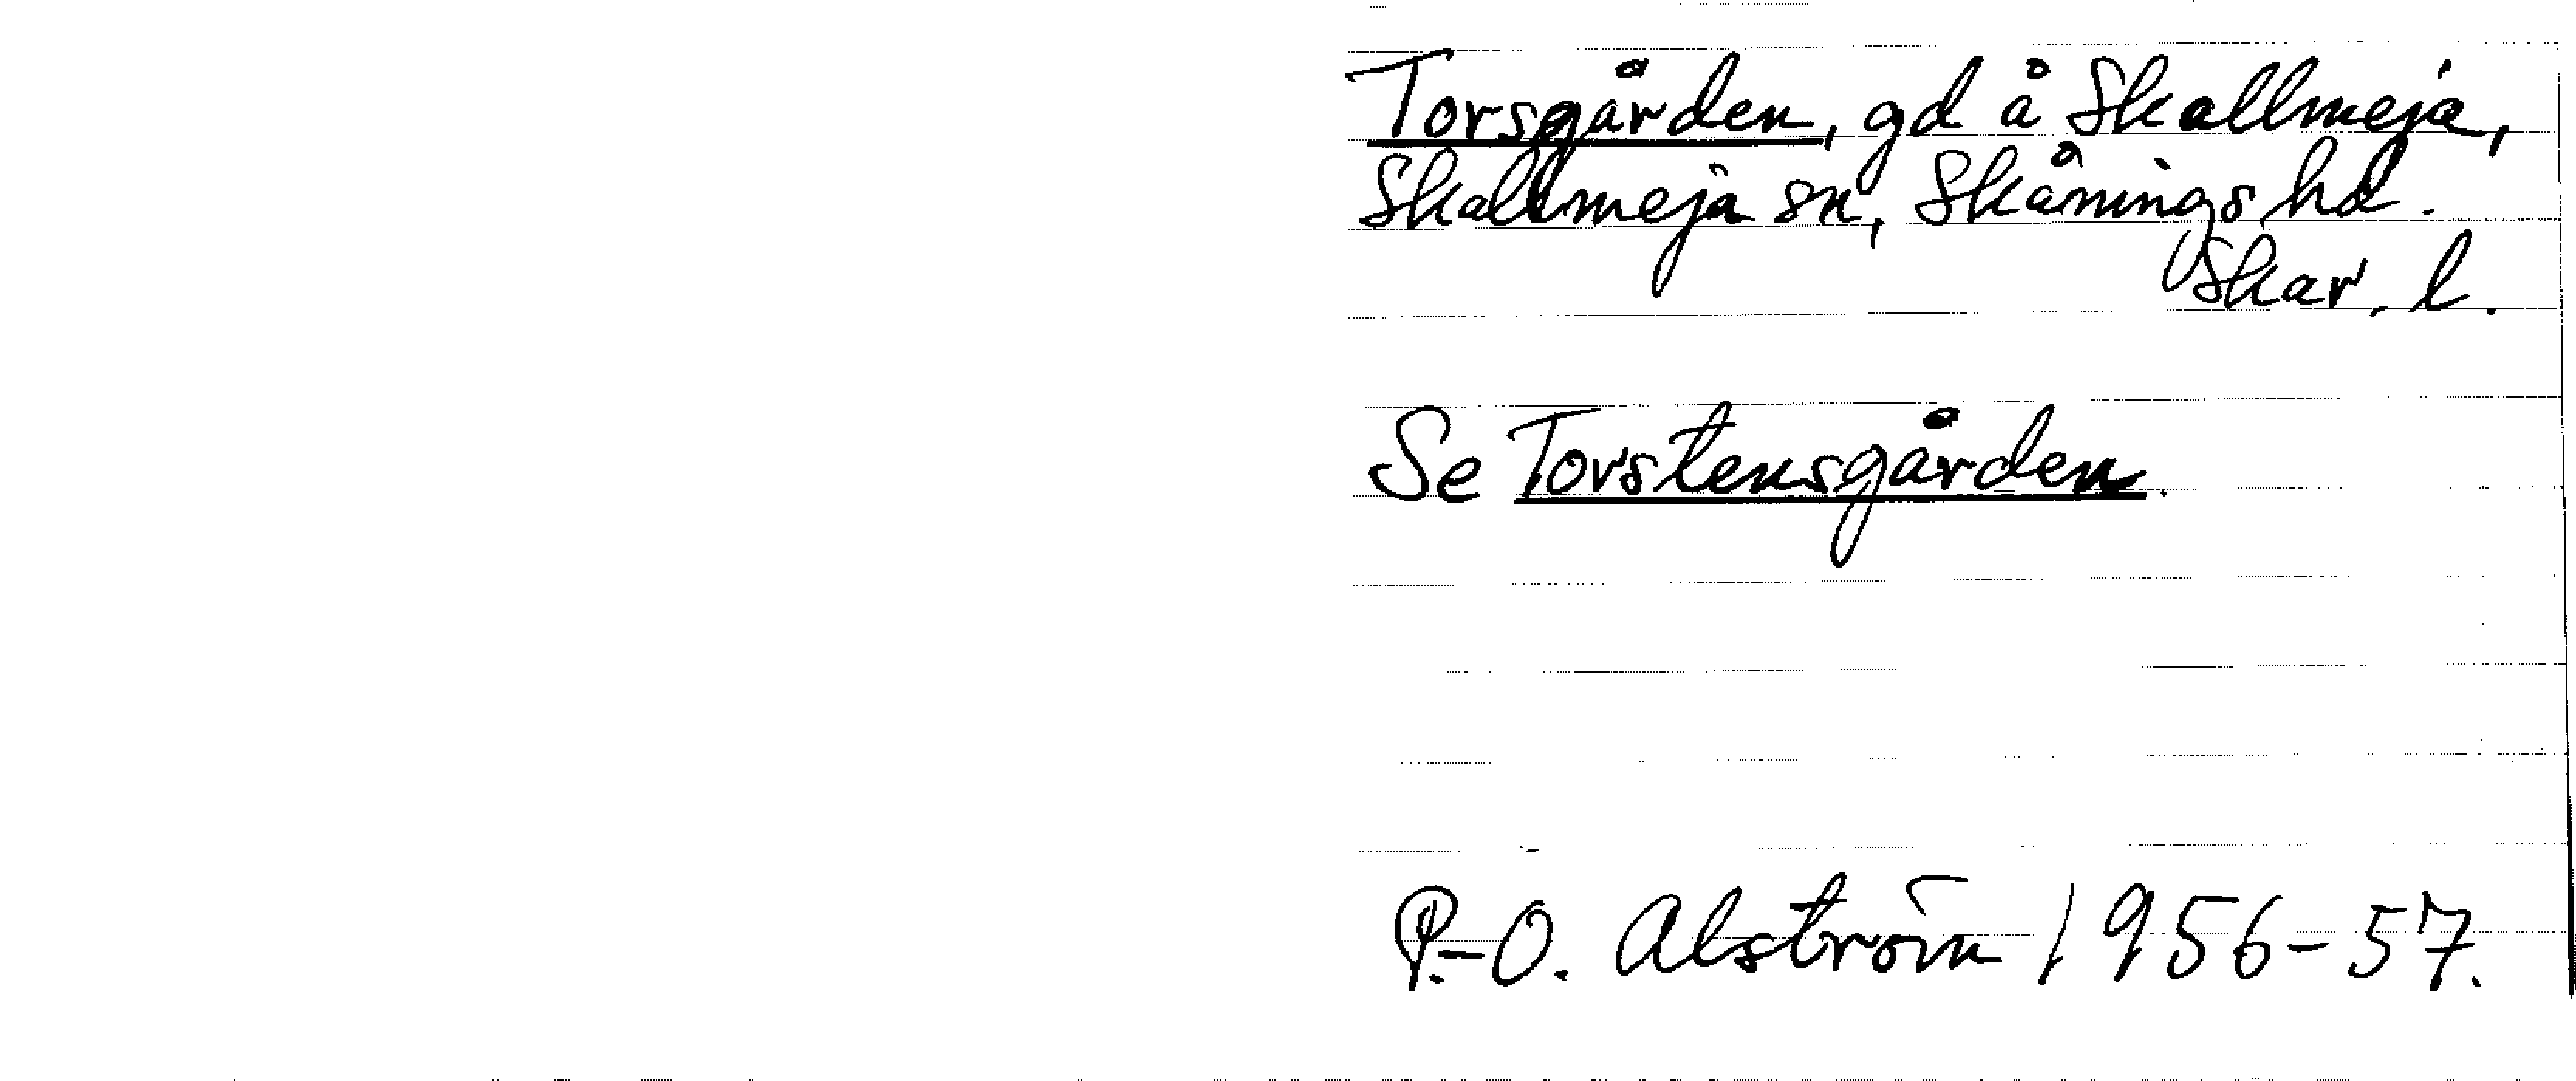 Torsgården, gd å Skallmeja,
Skallmeja sn, Skånings hd.
Skar. l.
Se Torstensgården.
P.-O. Alström 1956-57.